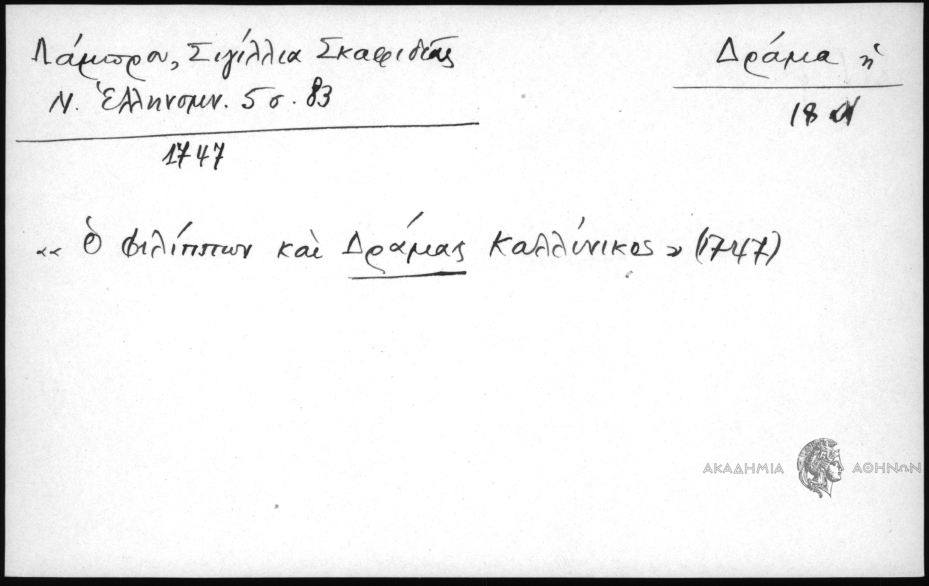 Λάμπρου, Σιγίλλια Σκαφιδιάς
Ν. Ἑλληνομν. 5 σ. 83
1747
Δράμα ἡ
18
«Ὁ Φιλίππων καὶ Δράμας Καλλίνικος» (1747)
ΑΚΑΔΗΜΙΑ ΑΘΗΝΩΝ